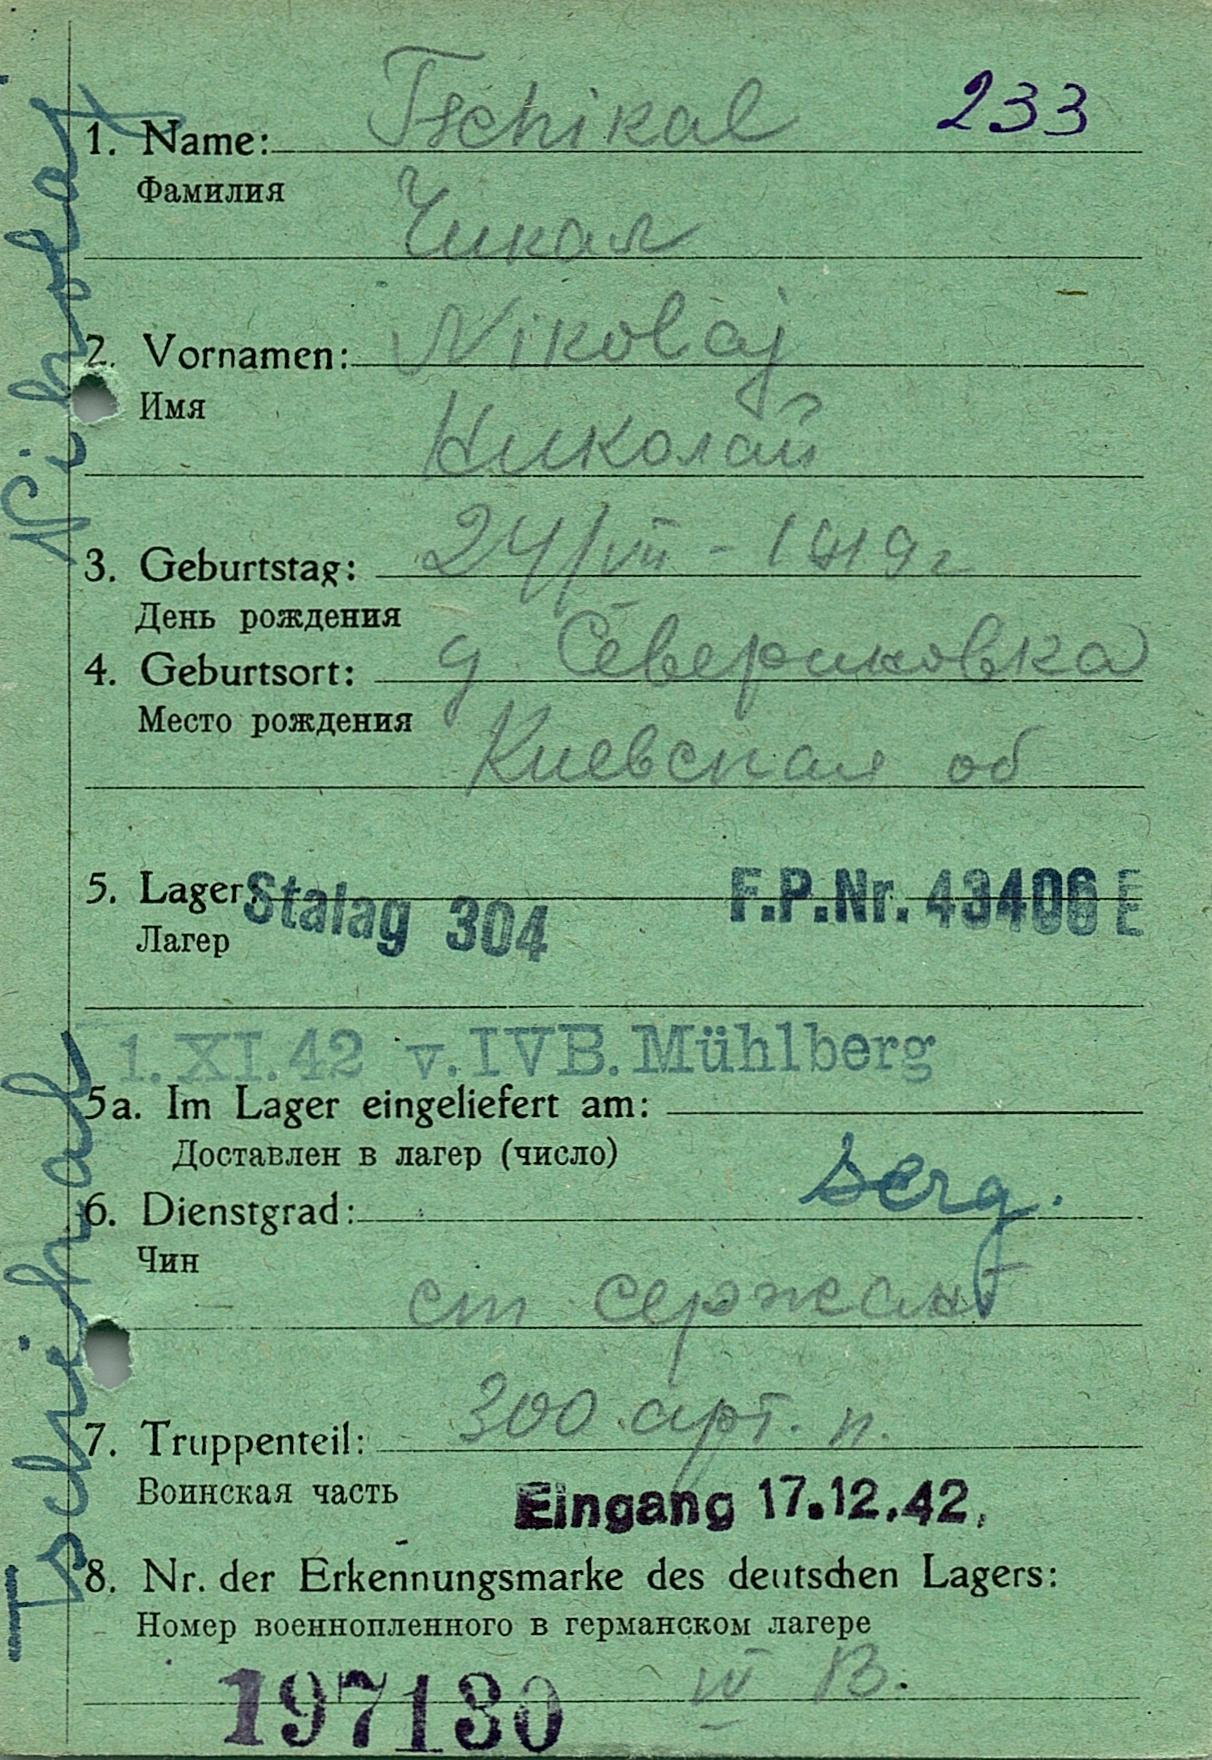 233
1. Name: Tschikal
Фамилия
Чикал
2. Vornamen: Nikolaj
Имя
Николай
3. Geburtstag: 24/VII - 1919 г
День рождения
4. Geburtsort: д. Севериновка
Место рождения
Киевская об
5. Lager Stalag 304 F.P.Nr. 43406 E
Лагер
1.XI.42 v. IVB. Mühlberg
5a. Im Lager eingeliefert am:
Доставлен в лагер (число)
6. Dienstgrad: serg.
Чин
ст сержант
7. Truppenteil: 300 арт. п.
Воинская часть
Eingang 17.12.42.
8. Nr. der Erkennungsmarke des deutschen Lagers:
Номер военнопленного в германском лагере
197130 IV B.
Tschikal Nikolaj